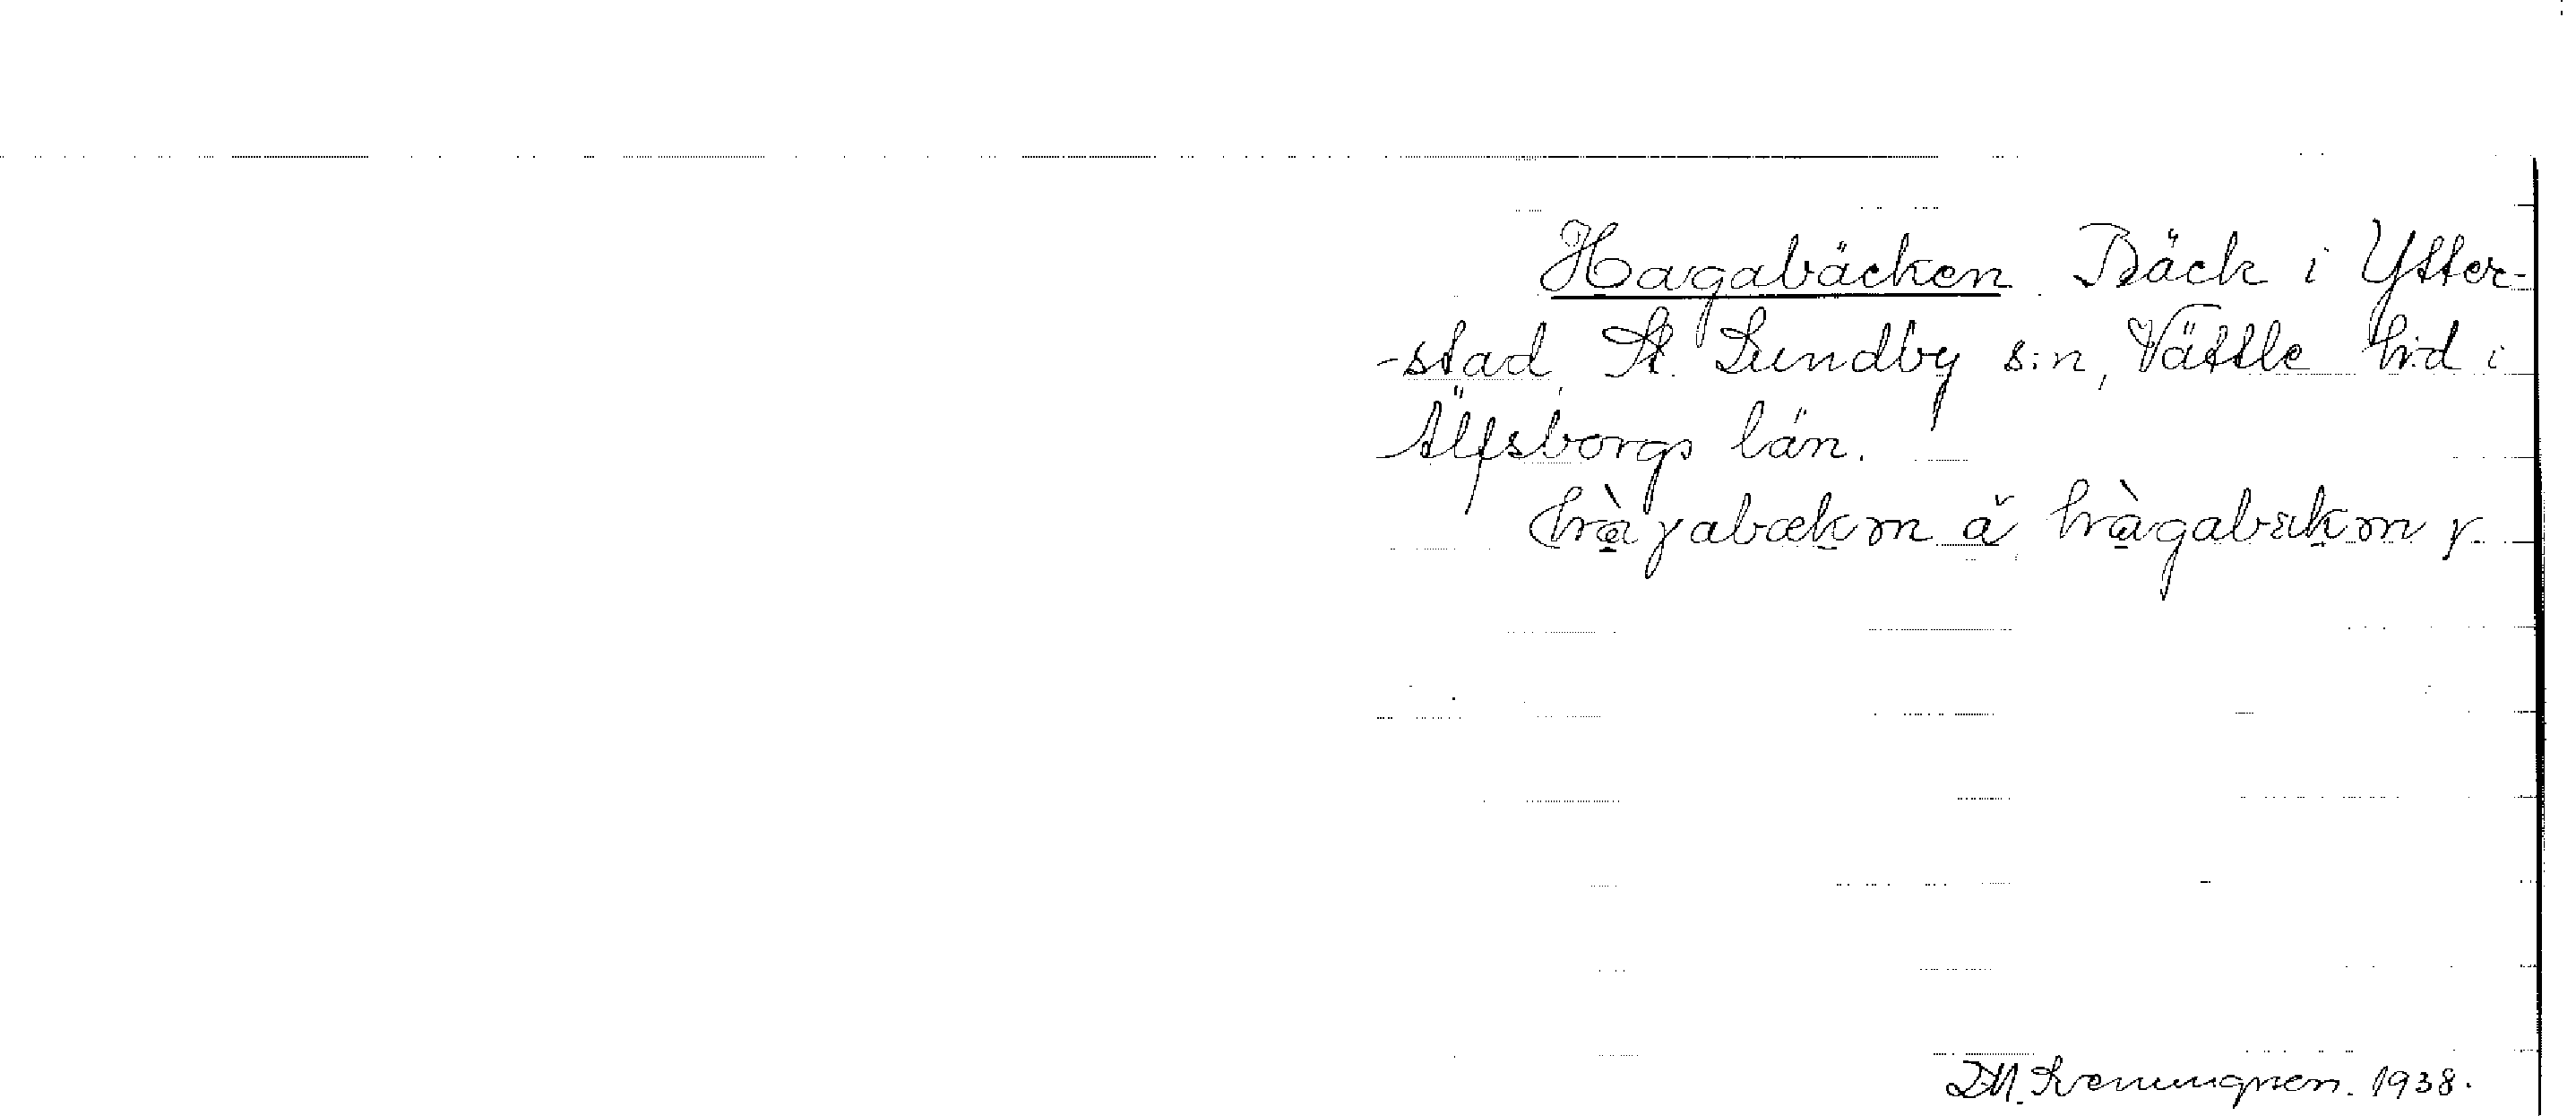 Hagabäcken. Bäck i Ytter-
-stad, St. Lundby s:n, Vättle h:d i
Älfsborgs län.
hàɣabækən å hàgabækən r.
1938.